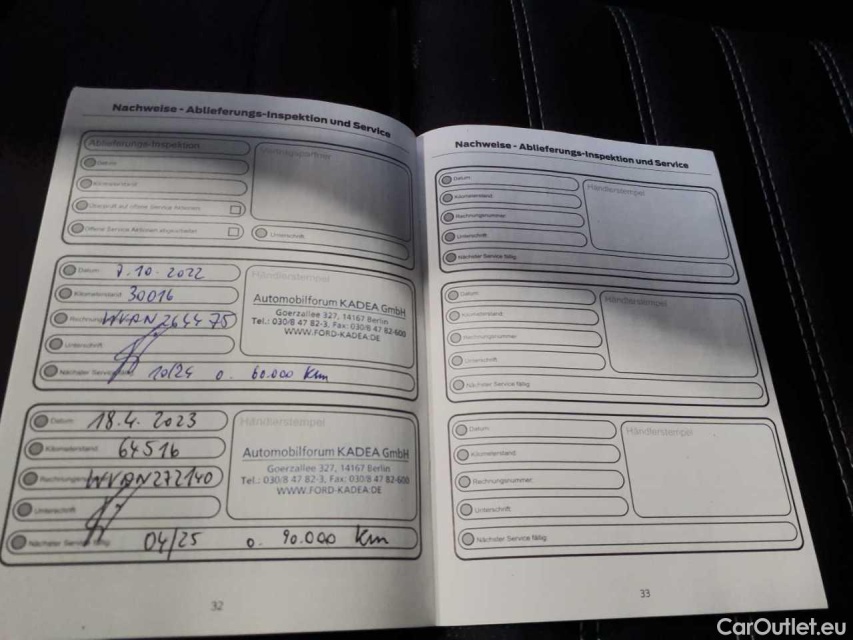 Nachweise - Ablieferungs-Inspektion und Service
Ablieferungs-Inspektion
Datum
Kilometerstand
Überprüft auf offene Service Aktionen
Offene Service Aktionen abgearbeitet
Unterschrift
Datum 7.10.2022
Kilometerstand 30016
WVRN264475
Unterschrift
Nächster Service fällig 10/24 o. 60.000 Km
Händlerstempel
Automobilforum KADEA GmbH
Goerzallee 327, 14167 Berlin
Tel.: 030/8 47 82-3, Fax: 030/8 47 82-600
WWW.FORD-KADEA.DE
Datum 18.4.2023
Kilometerstand 64516
WVRN272140
Unterschrift
Nächster Service fällig 04/25 o. 90.000 Km
Händlerstempel
Automobilforum KADEA GmbH
Goerzallee 327, 14167 Berlin
Tel.: 030/8 47 82-3, Fax: 030/8 47 82-600
WWW.FORD-KADEA.DE
32
Nachweise - Ablieferungs-Inspektion und Service
Datum
Kilometerstand
Rechnungsnummer
Unterschrift
Nächster Service fällig
Händlerstempel
Datum
Kilometerstand
Rechnungsnummer
Unterschrift
Nächster Service fällig
Händlerstempel
Datum
Kilometerstand
Rechnungsnummer
Unterschrift
Nächster Service fällig
Händlerstempel
33
CarOutlet.eu